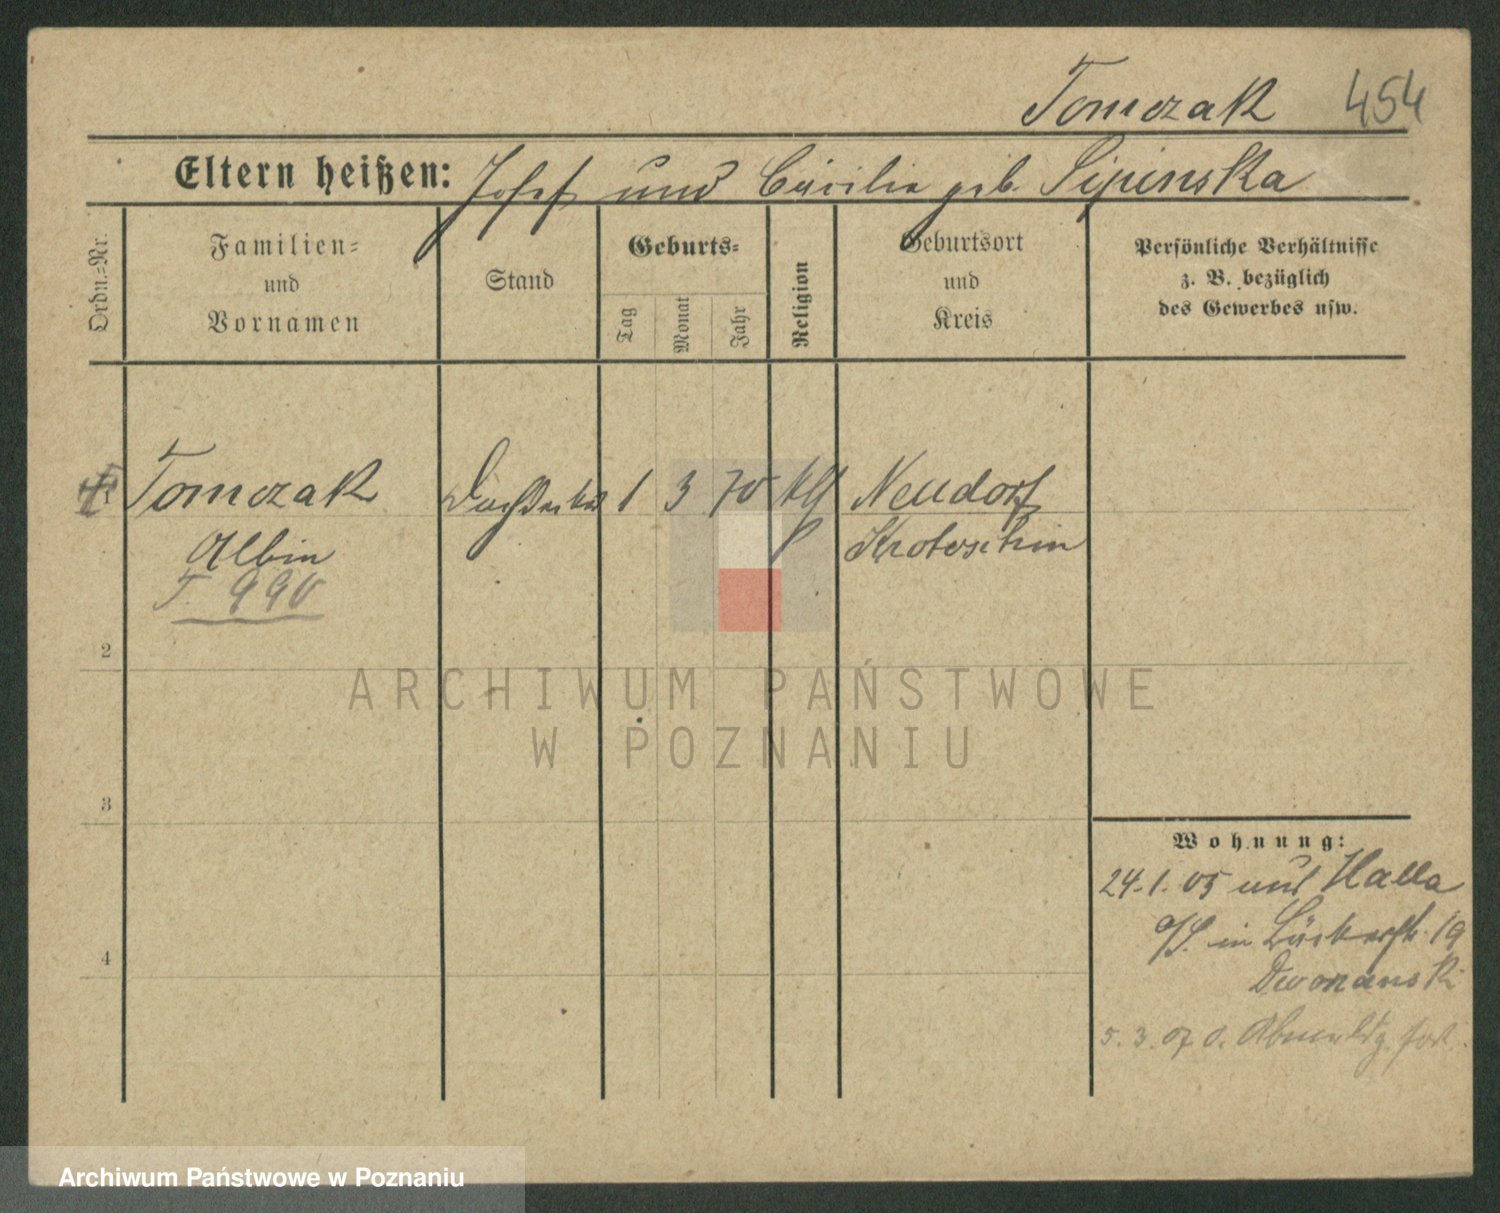 Tomczak 454
Eltern heißen: Josef und Cäcilie geb. Sipinska
Ordn.-Nr.
Familien-
und
Vornamen
Stand
Geburts-
Tag
Monat
Jahr
Religion
Geburtsort
und
Kreis
Persönliche Verhältnisse
z. B. bezüglich
des Gewerbes usw.
Tomczak Dachdecker 1 3 70 kth Neudorf
Albin Krotoschin
T. 990
2
ARCHIWUM PAŃSTWOWE
W POZNANIU
3
Wohnung:
24.1.05 aus Halle
a/S. in Bäckerstr. 19
4
Dworzanski
5.3.07 o. Abmeldg. fort.
Archiwum Państwowe w Poznaniu